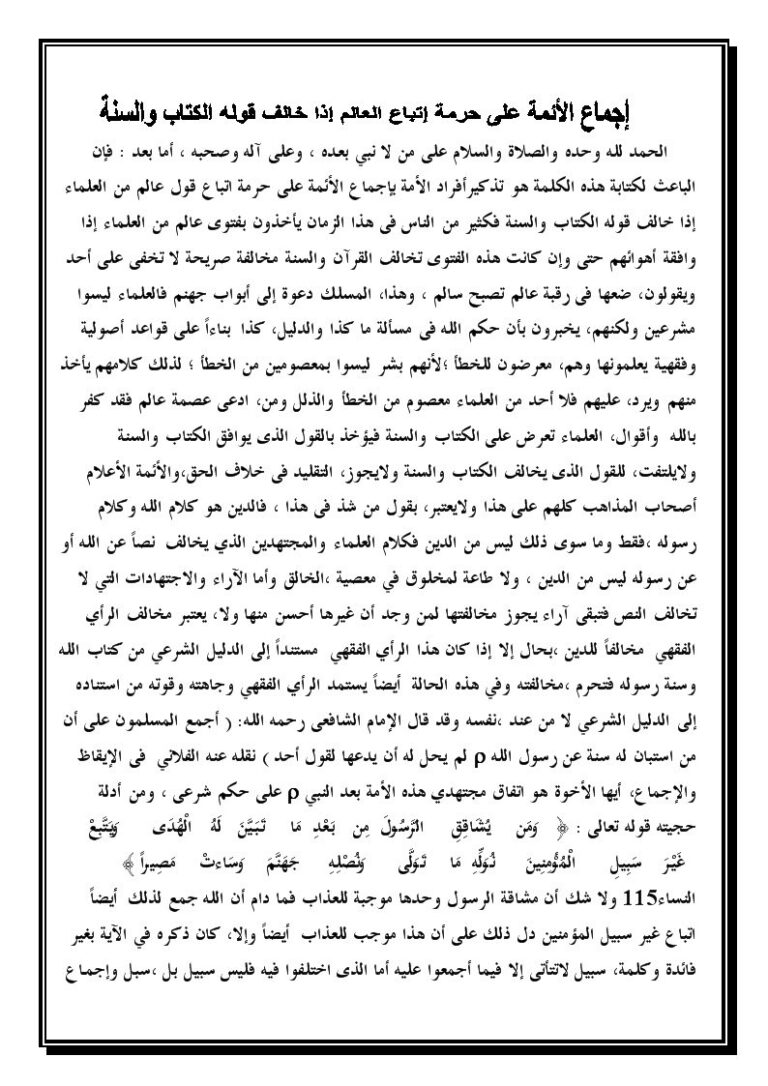 إجماع الأئمة على حرمة إتباع العالم إذا خالف قوله الكتاب والسنة
الحمد لله وحده والصلاة والسلام على من لا نبي بعده ، وعلى آله وصحبه ، أما بعد : فإن
الباعث لكتابة هذه الكلمة هو تذكيرأفراد الأمة بإجماع الأئمة على حرمة اتباع قول عالم من العلماء
إذا خالف قوله الكتاب والسنة فكثير من الناس فى هذا الزمان يأخذون بفتوى عالم من العلماء إذا
وافقة أهوائهم حتى وإن كانت هذه الفتوى تخالف القرآن والسنة مخالفة صريحة لا تخفى على أحد
ويقولون، ضعها فى رقبة عالم تصبح سالم ، وهذا، المسلك دعوة إلى أبواب جهنم فالعلماء ليسوا
مشرعين ولكنهم، يخبرون بأن حكم الله فى مسألة ما كذا والدليل، كذا بناءاً على قواعد أصولية
وفقهية يعلمونها وهم، معرضون للخطأ ؛لأنهم بشر ليسوا بمعصومين من الخطأ ؛ لذلك كلامهم يأخذ
منهم ويرد، عليهم فلا أحد من العلماء معصوم من الخطأ والذلل ومن، ادعى عصمة عالم فقد كفر
بالله وأقوال، العلماء تعرض على الكتاب والسنة فيؤخذ بالقول الذى يوافق الكتاب والسنة
ولايلتفت، للقول الذى يخالف الكتاب والسنة ولايجوز، التقليد فى خلاف الحق،والأئمة الأعلام
أصحاب المذاهب كلهم على هذا ولايعتبر، بقول من شذ فى هذا ، فالدين هو كلام الله وكلام
رسوله ،فقط وما سوى ذلك ليس من الدين فكلام العلماء والمجتهدين الذي يخالف نصاً عن الله أو
عن رسوله ليس من الدين ، ولا طاعة لمخلوق في معصية ،الخالق وأما الآراء والاجتهادات التي لا
تخالف النص فتبقى آراء يجوز مخالفتها لمن وجد أن غيرها أحسن منها ولا، يعتبر مخالف الرأي
الفقهي مخالفاً للدين ،بحال إلا إذا كان هذا الرأي الفقهي مستنداً إلى الدليل الشرعي من كتاب الله
وسنة رسوله فتحرم ،مخالفته وفي هذه الحالة أيضاً يستمد الرأي الفقهي وجاهته وقوته من استناده
إلى الدليل الشرعي لا من عند ،نفسه وقد قال الإمام الشافعى رحمه الله: ( أجمع المسلمون على أن
من استبان له سنة عن رسول الله ρ لم يحل له أن يدعها لقول أحد ) نقله عنه الفلاني فى الإيقاظ
والإجماع، أيها الأخوة هو اتفاق مجتهدي هذه الأمة بعد النبي ρ على حكم شرعى ، ومن أدلة
حجيته قوله تعالى : ﴿ وَمَن يُشَاقِقِ الرَّسُولَ مِن بَعْدِ مَا تَبَيَّنَ لَهُ الْهُدَى وَيَتَّبِعْ
غَيْرَ سَبِيلِ الْمُؤْمِنِينَ نُوَلِّهِ مَا تَوَلَّى وَنُصْلِهِ جَهَنَّمَ وَسَاءتْ مَصِيراً ﴾
النساء115 ولا شك أن مشاقة الرسول وحدها موجبة للعذاب فما دام أن الله جمع لذلك أيضاً
اتباع غير سبيل المؤمنين دل ذلك على أن هذا موجب للعذاب أيضاً وإلا، كان ذكره في الآية بغير
فائدة وكلمة، سبيل لاتتأتى إلا فيما أجمعوا عليه أما الذى اختلفوا فيه فليس سبيل بل ،سبل وإجماع